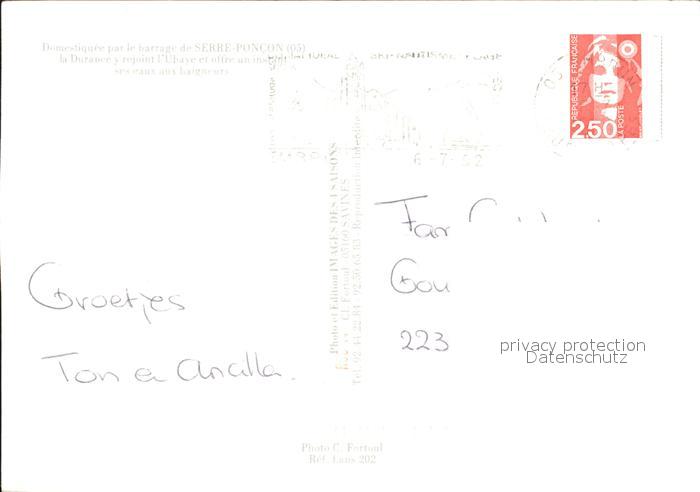 Domestiquée par le barrage de SERRE-PONÇON (05)
la Durance y rejoint l'Ubaye et offre
ses eaux aux baigneurs
RÉPUBLIQUE FRANÇAISE
2,50
LA POSTE
6-7-92
Photo et Edition IMAGES DES 4 SAISONS
Cl. Fortoul - 05160 SAVINES
Tel. 92 44 22 84 - 92 50 65 83 - Reproduction interdite
Fam
Gou
223
Groetjes
Ton en
privacy protection
Datenschutz
Photo C. Fortoul
Réf. Lans 202